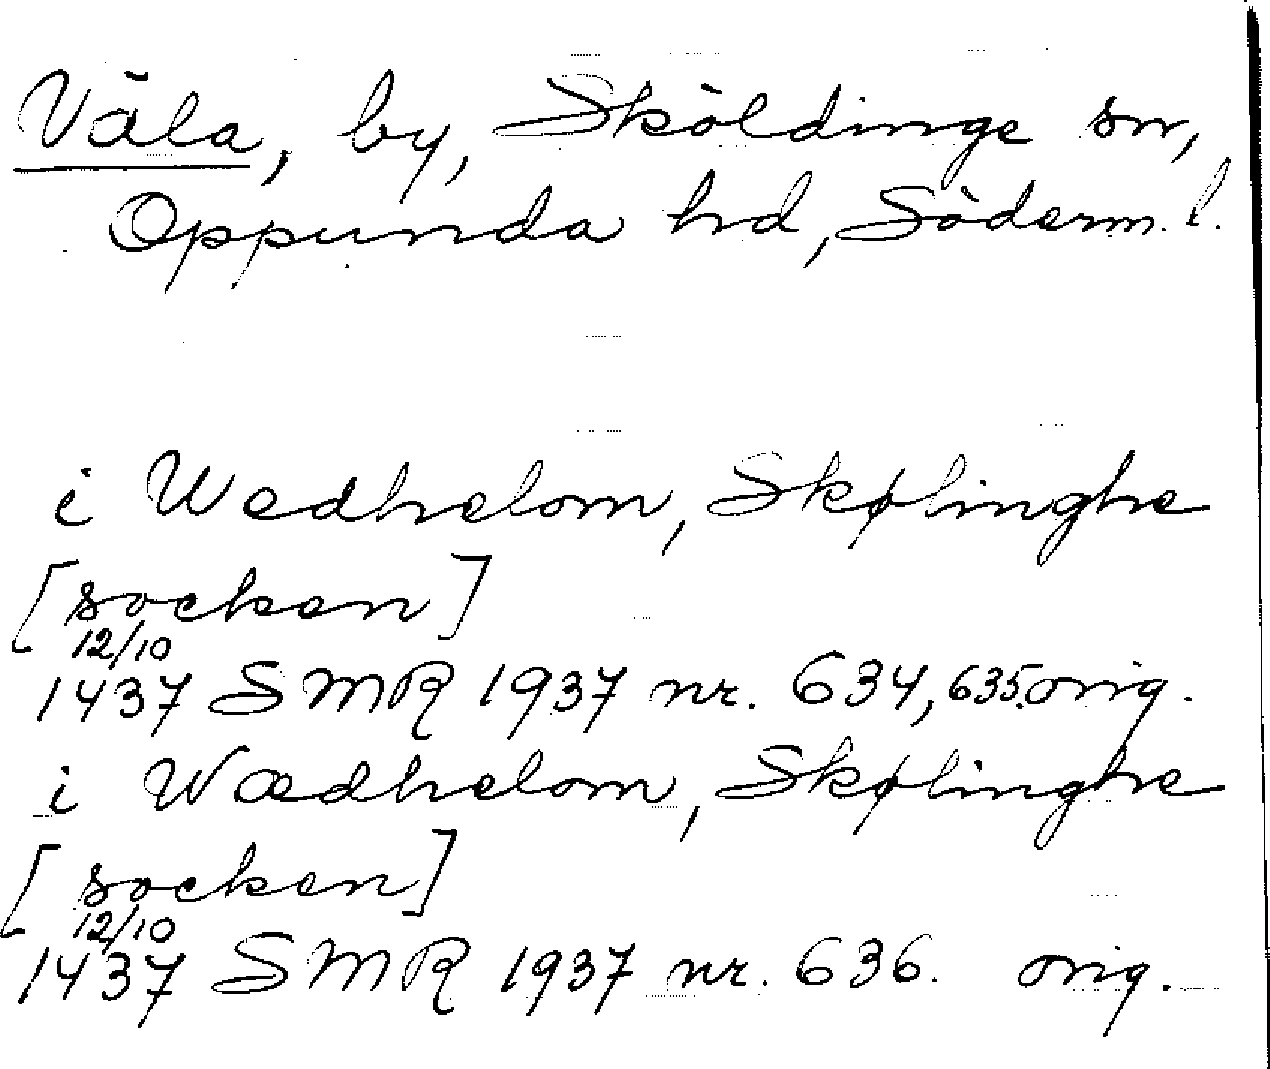 Väla, by, Sköldinge sn,
Oppunda hd, Söderm. l.
i Wedhelom, Skølinghe
[socken]
12/10
1437 SMR 1937 nr. 634, 635. orig.
i Wædhelom, Skølinghe
[socken]
12/10
1437 SMR 1937 nr. 636. orig.